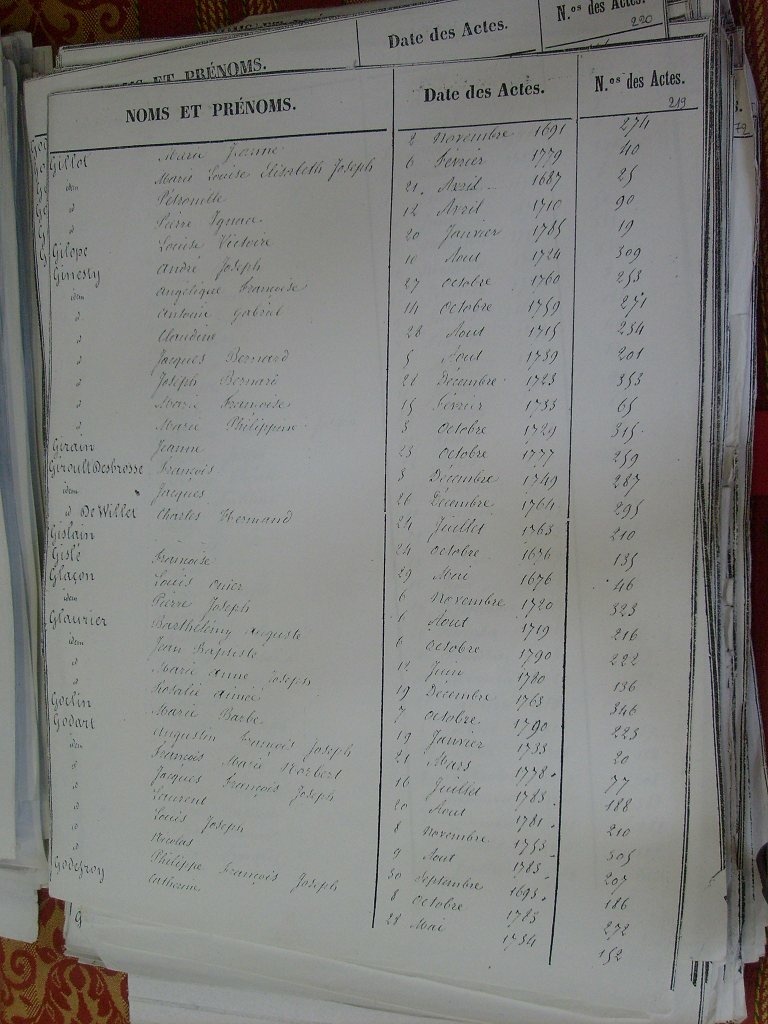 Date des Actes.
N.os des Actes.
220
ET PRÉNOMS.
NOMS ET PRÉNOMS. Date des Actes. N.os des Actes.
219
Gillot Marie Jeanne 2 Novembre 1691 274
idem Marie Louise Elisabeth Joseph 6 Février 1779 40
d Petronille 21 Avril 1687 25
d Pierre Ignace 12 Avril 1710 90
Gilope Louise Victoire 20 Janvier 1785 19
Ginesty André Joseph 10 Aout 1724 309
idem Angelique Françoise 27 Octobre 1760 253
d Antoine Gabriel 14 Octobre 1759 271
d Claudine 28 Aout 1715 234
d Jacques Bernard 5 Aout 1739 201
d Joseph Bernard 21 Décembre 1723 353
d Marie Françoise 15 Février 1733 65
d Marie Philippine 3 Octobre 1729 315
Girain Jeanne 23 Octobre 1777 259
Giroult Desbrosse François 3 Décembre 1749 287
idem Jacques 26 Décembre 1764 295
d De Willet Charles Hermand 24 Juillet 1763 210
Gislain 24 Octobre 1676 135
Gislé Françoise 29 Mai 1676 46
Glaçon Louis 6 Novembre 1720 323
idem Pierre Joseph 6 Aout 1719 216
Glaurier Barthélémy Auguste 6 Octobre 1790 222
idem Jean Baptiste 12 Juin 1780 136
d Marie Anne Joseph 19 Décembre 1763 346
d Rosalie Aimée 7 Octobre 1790 223
Goclin Marie Barbe 19 Janvier 1733 20
Godart Augustin François Joseph 21 Mars 1778 77
idem François Marie Norbert 16 Juillet 1783 188
d Jacques François Joseph 20 Aout 1781 210
d Laurent 8 Novembre 1753 305
d Louis Joseph 9 Aout 1785 207
d Nicolas 30 Septembre 1693 186
d Philippe François Joseph 8 Octobre 1783 272
Godefroy Catherine 28 Mai 1734 152